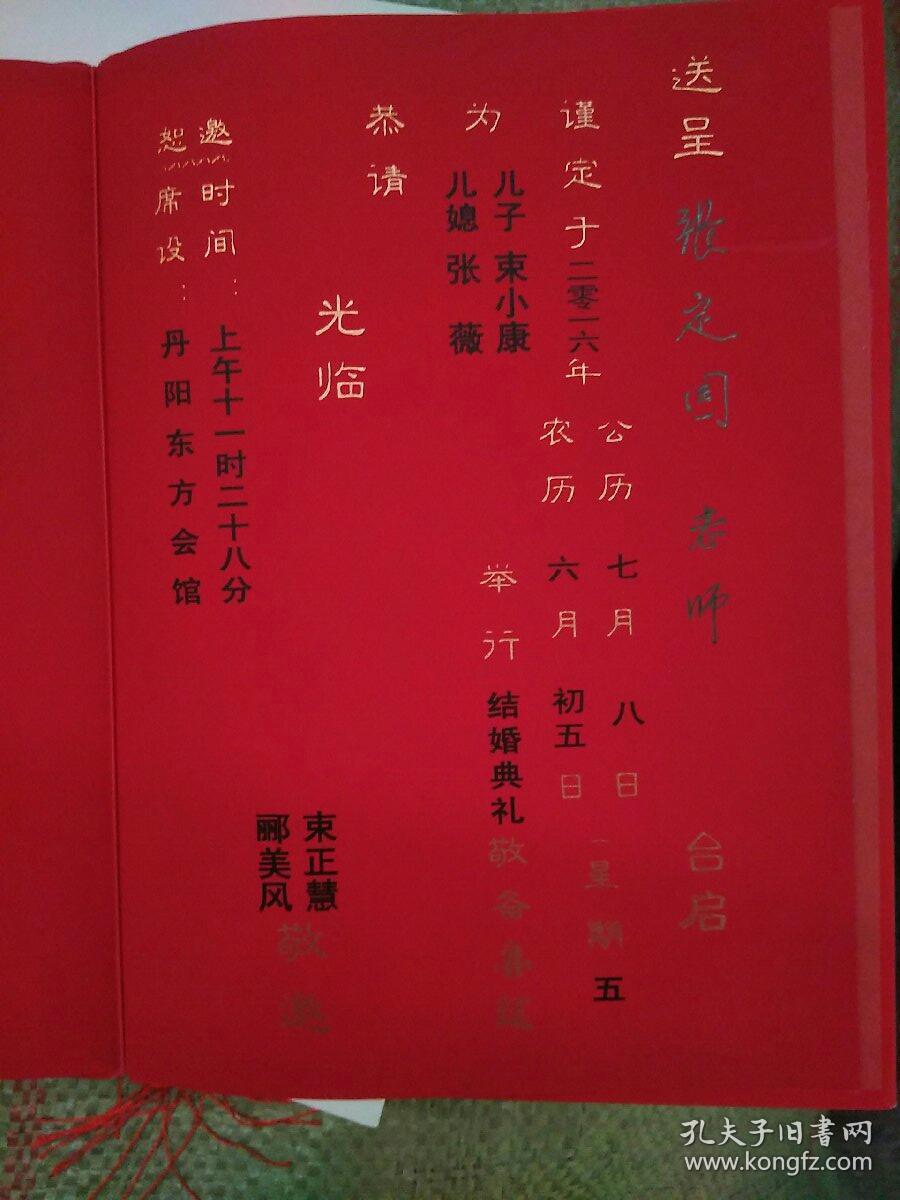 送呈 張定国 老师 台启
谨定于二零一六年
公历 七月 八日 星期五
农历 六月 初五日
为
儿子 束小康
儿媳 张薇
举行 结婚典礼 敬备喜筵
恭请
光临
束正慧
郦美风
敬邀
时间：上午十一时二十八分
席设：丹阳东方会馆
恕邀
孔夫子旧书网
www.kongfz.com